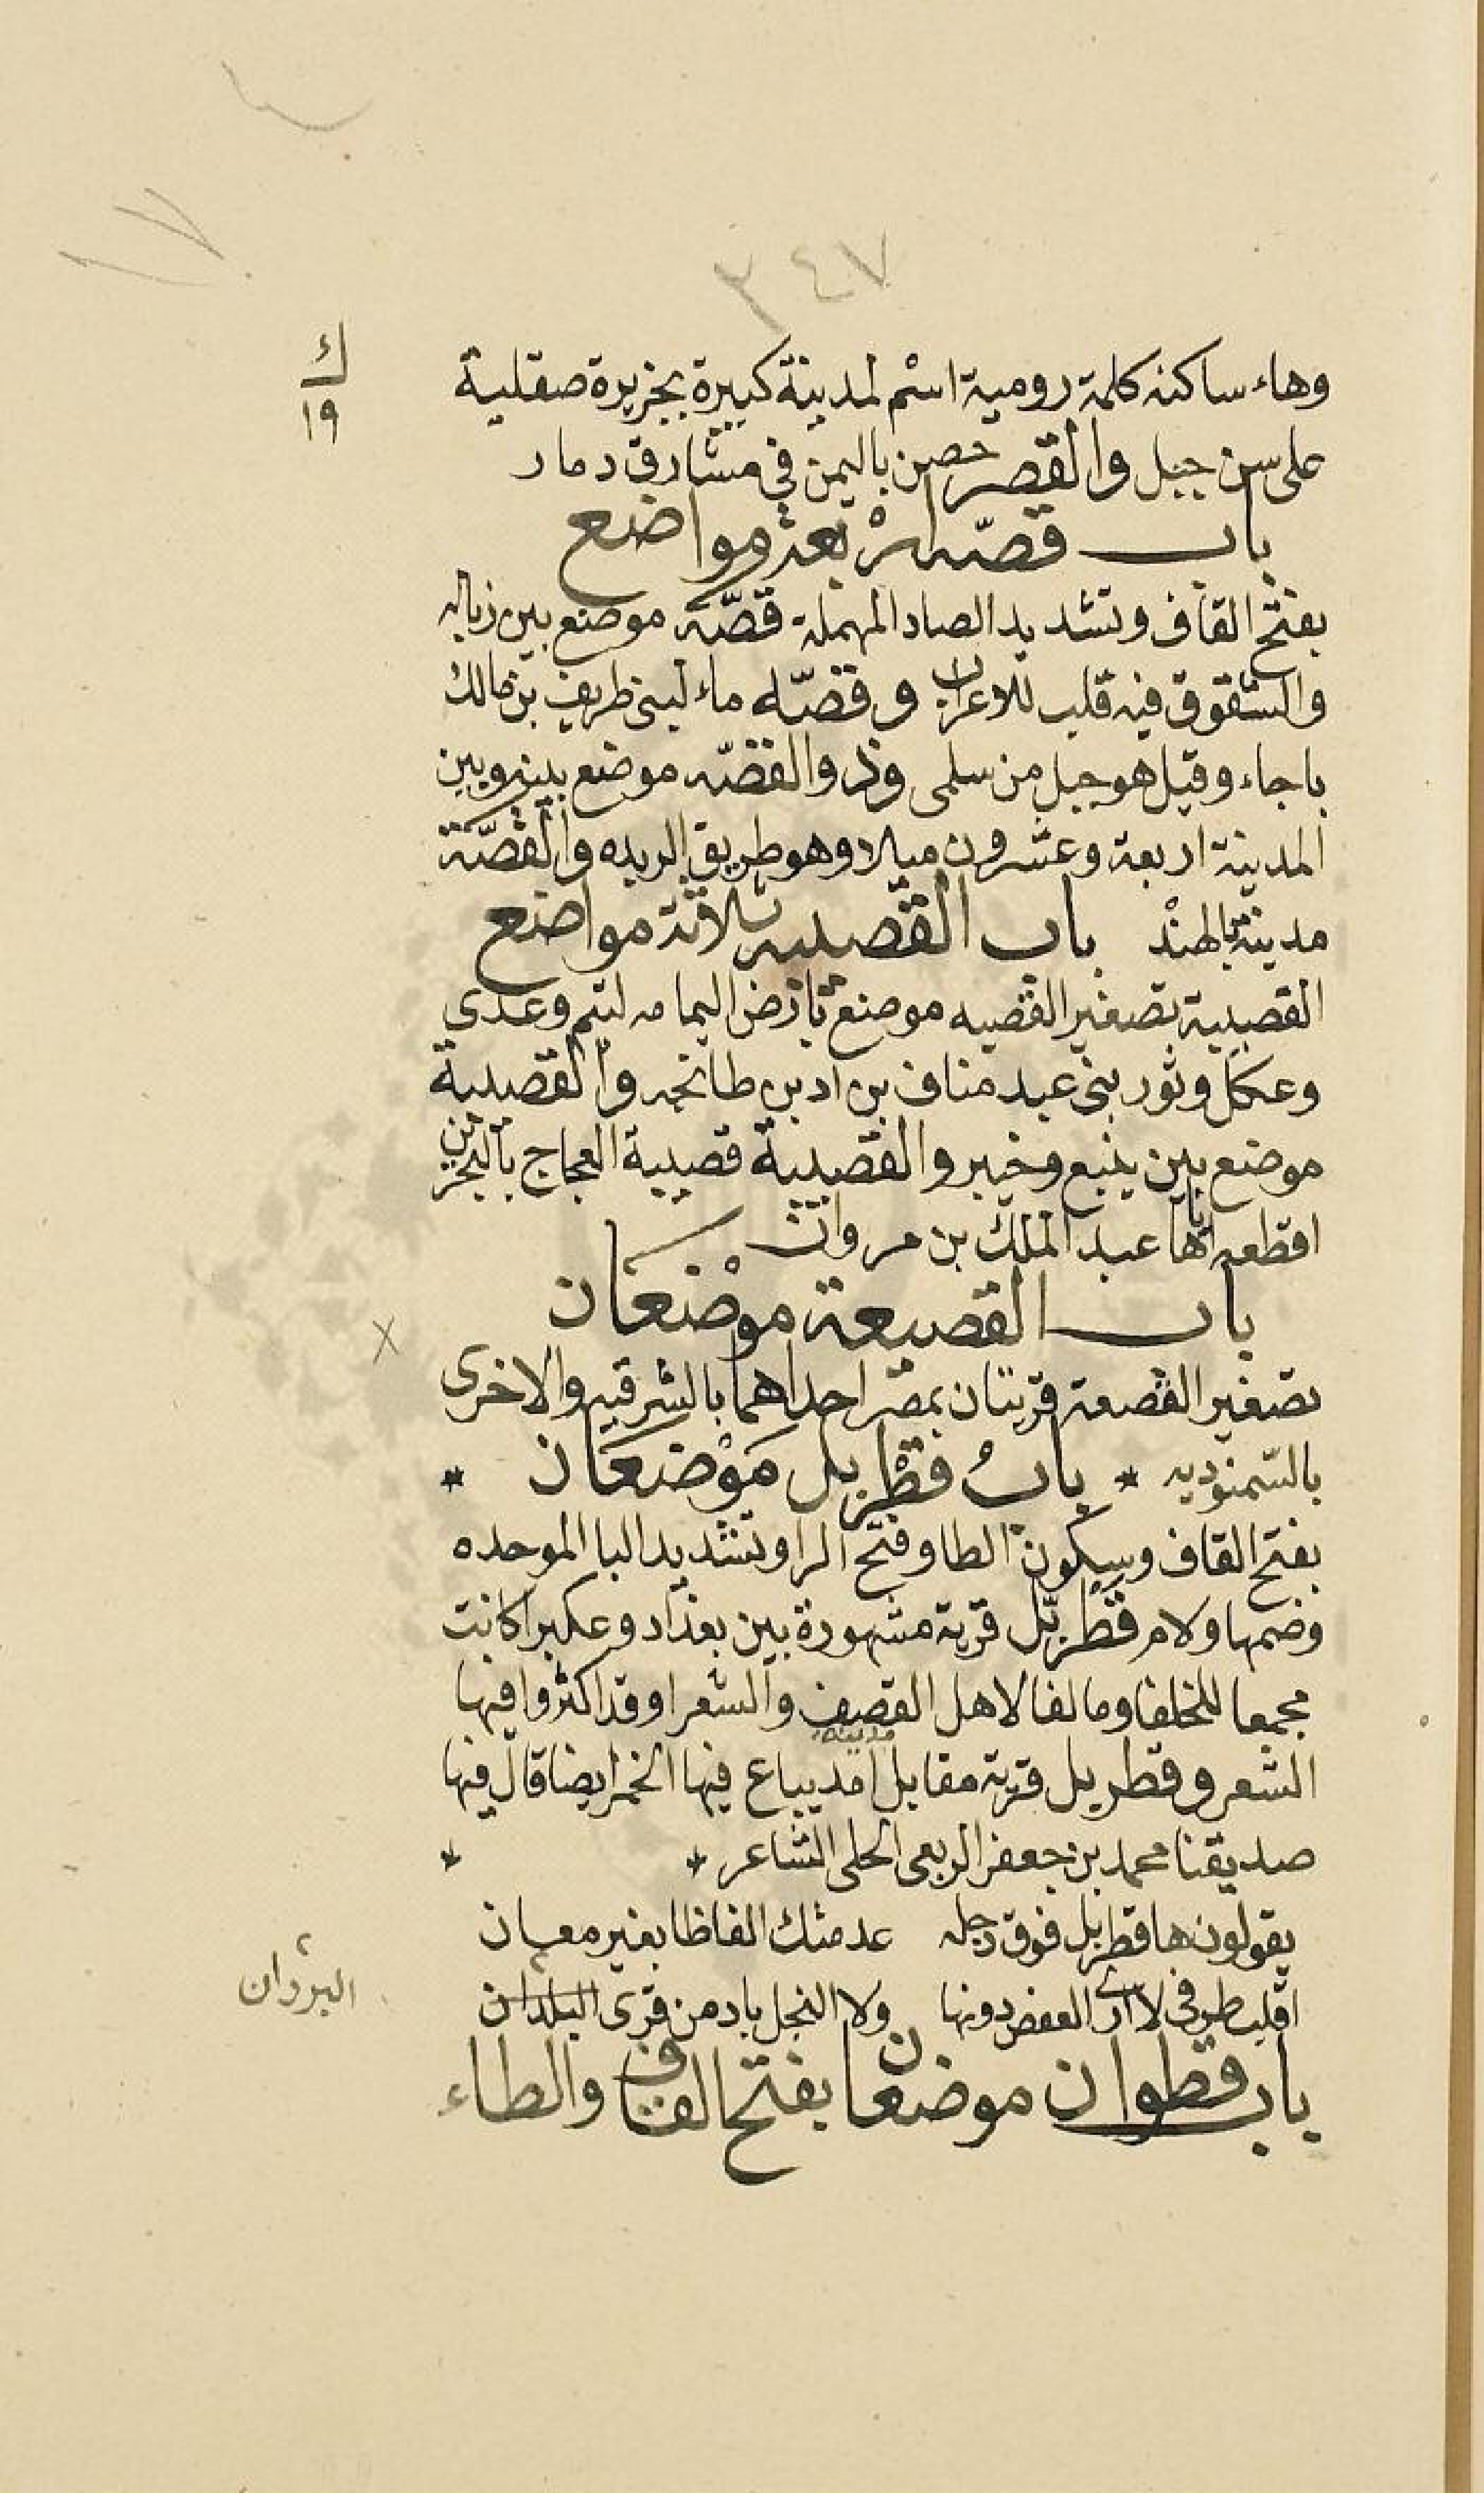 ٣٤٧
ك
١٩
وهاء ساكنه كلمة رومية اسْم لمدينة كبيرة بجزيرة صقلية
على سن جبل والقصر حصين باليمن في مشارق دمار
باب قصّه ارْبعة مواضع
بفتح القاف وتشديد الصاد المهملة قصّه موضع بين زباله
والشقوق فيه قلب للاعراب وقصّه ماء لبنى طريف بن مالك
باجاء وقيل هو جبل من سلمى وذو القصّه موضع بينه وبين
المدينة اربعة وعشرون ميلا وهو طريق الربده والقصّة
مدينة بالهنْد باب القصيبه ثلاثة مواضع
القصيبة بتصغير القصبه موضع بارض اليمامه لتيم وعدى
وعكل وثور بنى عبد مناف بن اد بن طابخه والقصيبة
موضع بين ينبع وخيبر والقصيبة قصيبة العجاج بالبحرين
اقطعه اياها عبد الملك بن مروان
باب القصيعة موْضعَان
بصغير القصعة قريتان بمصر احداهما بالشرقيه والاخرى
بالسّمنوديه * بابُ قطْربل مَوْضعَان *
بفتح القاف وسكون الطا وفتح الرا وتشديد البا الموحده
وضمها ولام قطْربّل قرية مشهورة بين بغداد وعكبرا كانت
مجمعا للخلفا ومالفا لاهل القصف والشعرا وقد اكثروا فيها
الشعر وقطربل قرية مقابل مدينة امد يباع فيها الخمر ايضا قال فيها
صديقنا محمد بن جعفر الربعى الحلى الشاعر * *
يقولون ها قطربل فوق دجله عدمتك الفاظا بغير معان
اقلب طرفى لا ارى القفص دونها ولا النخل باد من قرى البلدان
البردان
باب قطوان موضعان بفتح القاف والطاء